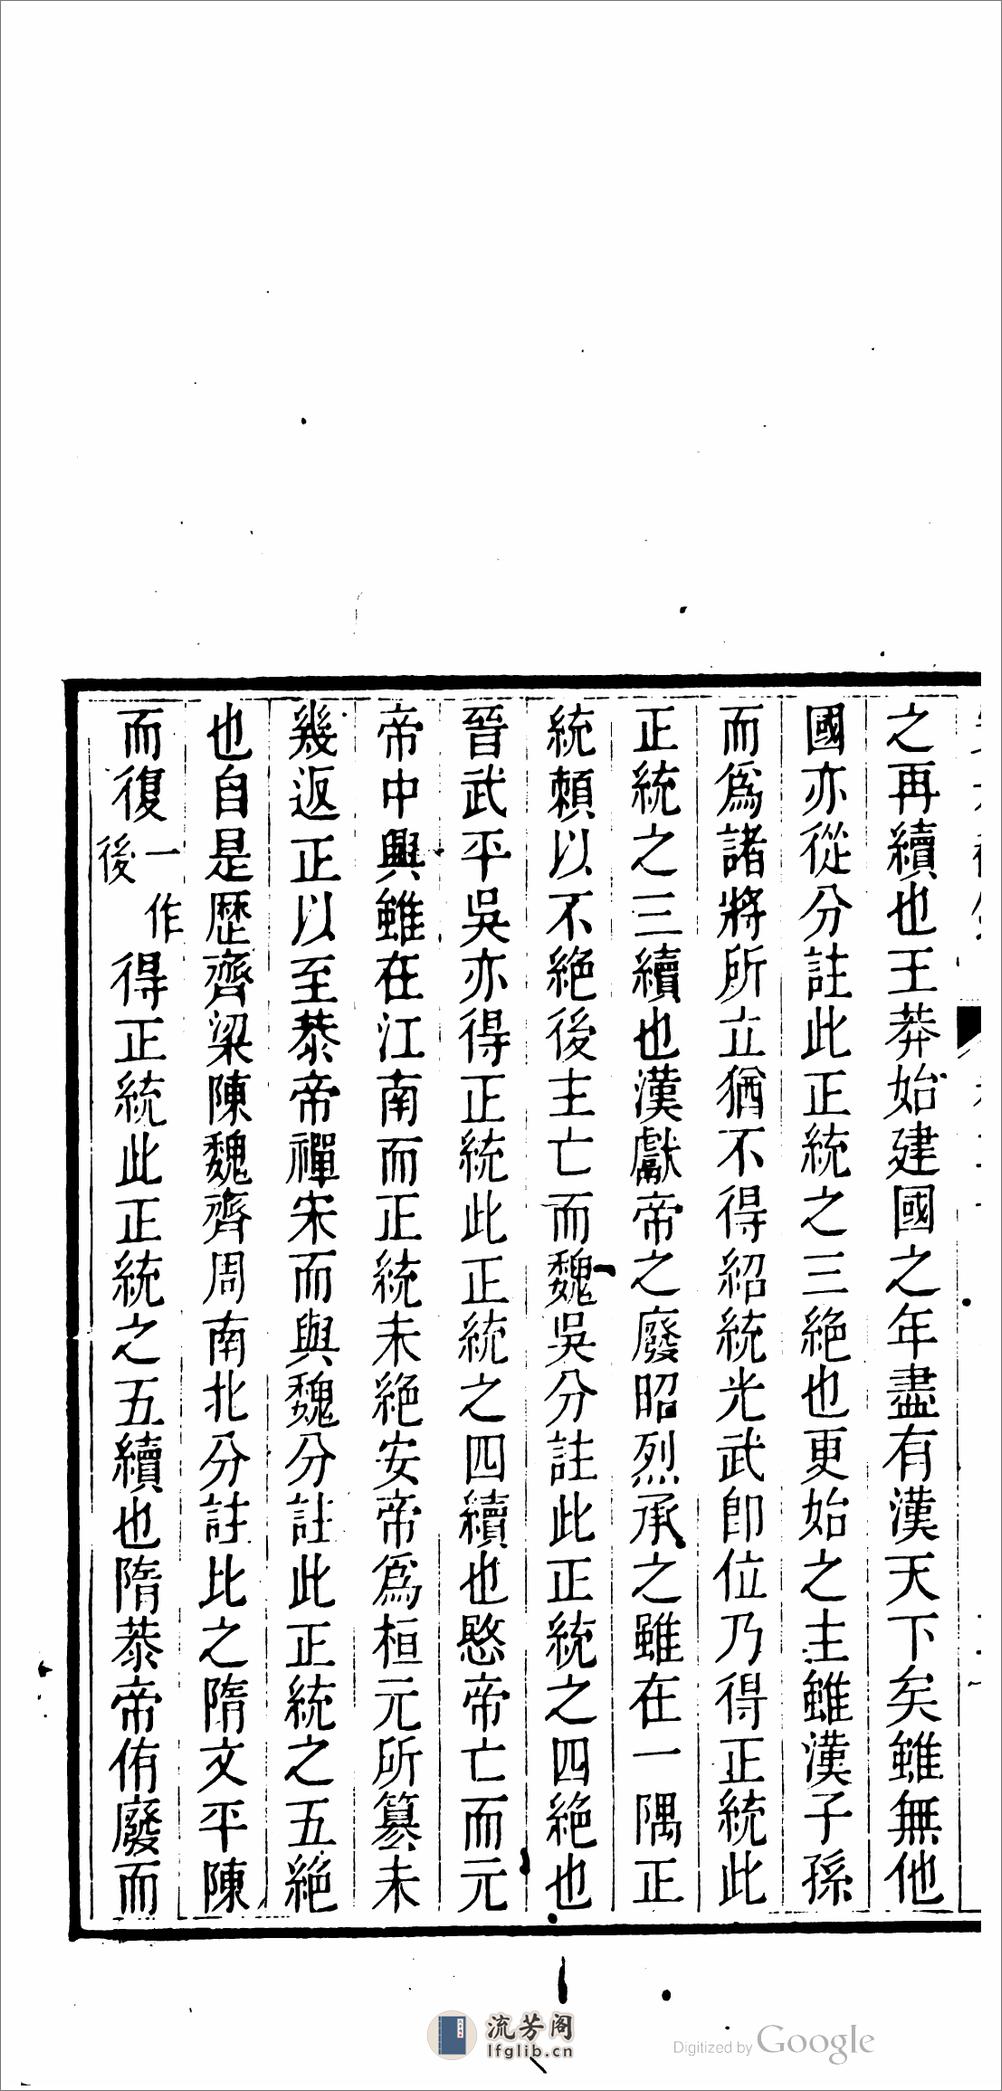 之再續也王莽始建國之年盡有漢天下矣雖無他
國亦從分註此正統之三絕也更始之主雖漢子孫
而爲諸將所立猶不得紹統光武卽位乃得正統此
正統之三續也漢獻帝之廢昭烈承之雖在一隅正
統賴以不絕後主亡而魏吳分註此正統之四絕也
晉武平吳亦得正統此正統之四續也愍帝亡而元
帝中興雖在江南而正統未絕安帝爲桓元所篡未
幾返正以至恭帝禪宋而與魏分註此正統之五絕
也自是歷齊梁陳魏齊周南北分註比之隋文平陳
而復一作後得正統此正統之五續也隋恭帝侑廢而
流芳阁
lfglib.cn
Digitized by Google